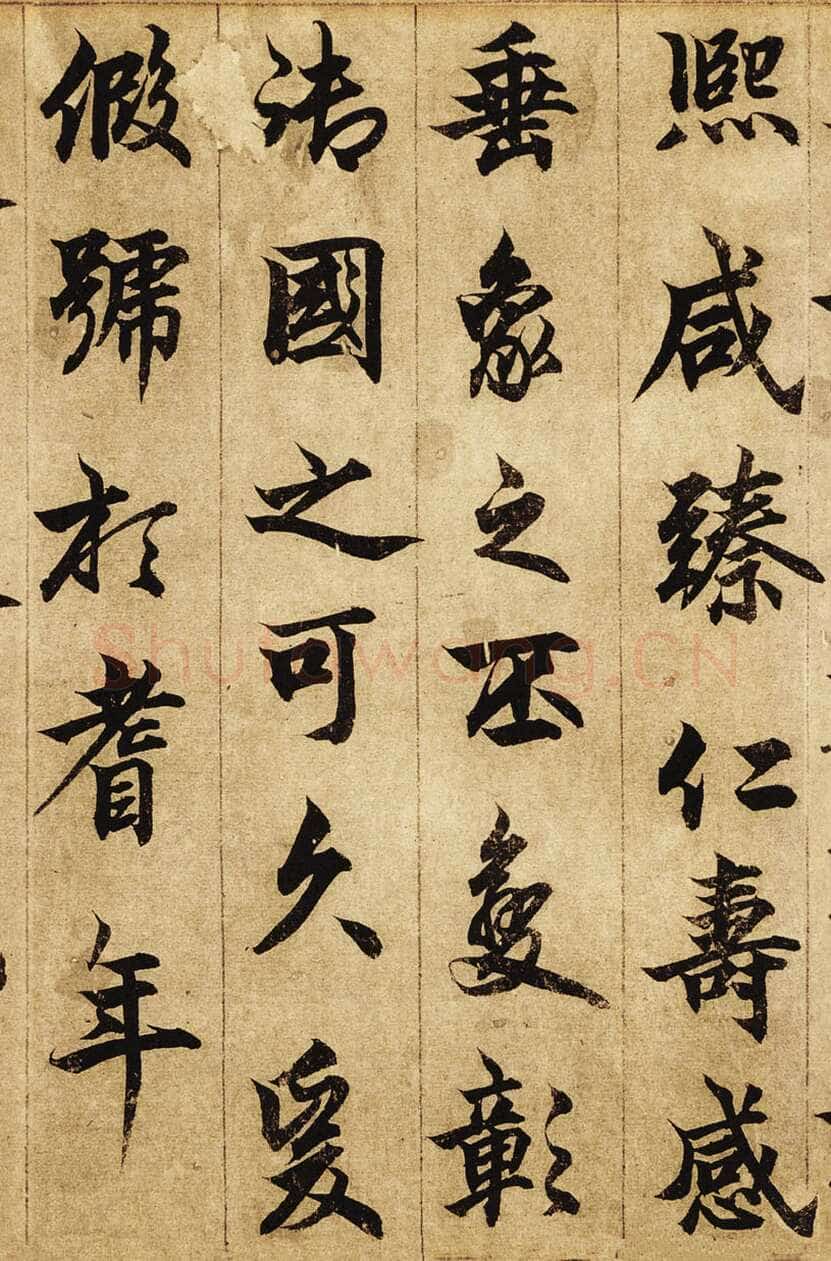 熙咸臻仁壽感
垂象之丕變彰
御國之可久爰
假號於耆年
Shufawang.CN